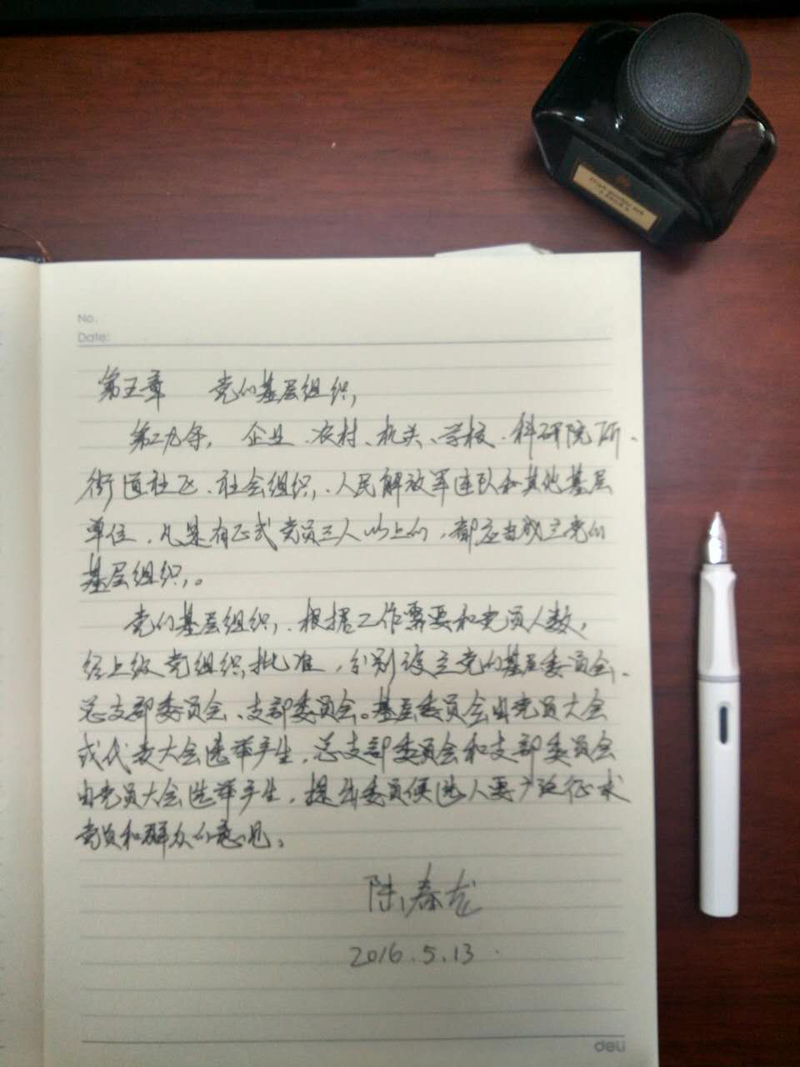 No.
Date:
第五章 党的基层组织
第二九条, 企业、农村、机关、学校、科研院所、
街道社区、社会组织、人民解放军连队和其他基层
单位,凡是有正式党员三人以上的,都应当成立党的
基层组织。
党的基层组织,根据工作需要和党员人数,
经上级党组织批准,分别设立党的基层委员会、
总支部委员会、支部委员会。基层委员会由党员大会
或代表大会选举产生,总支部委员会和支部委员会
由党员大会选举产生,提出委员候选人要广泛征求
党员和群众的意见。
陆春龙
2016.5.13.
deli